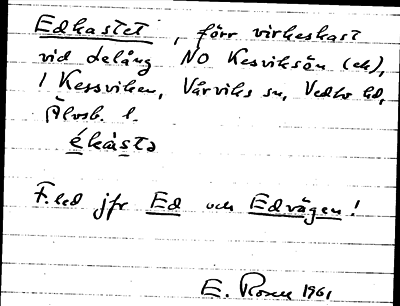 Edkastet, förr virkeskast
vid delång NO Kesviksön (ek),
i Kessviken, Vårviks sn, Vedbo hd,
Älvsb. l.
ékàstə
F.led jfr Ed och Edvägen!
E. Rosell 1961